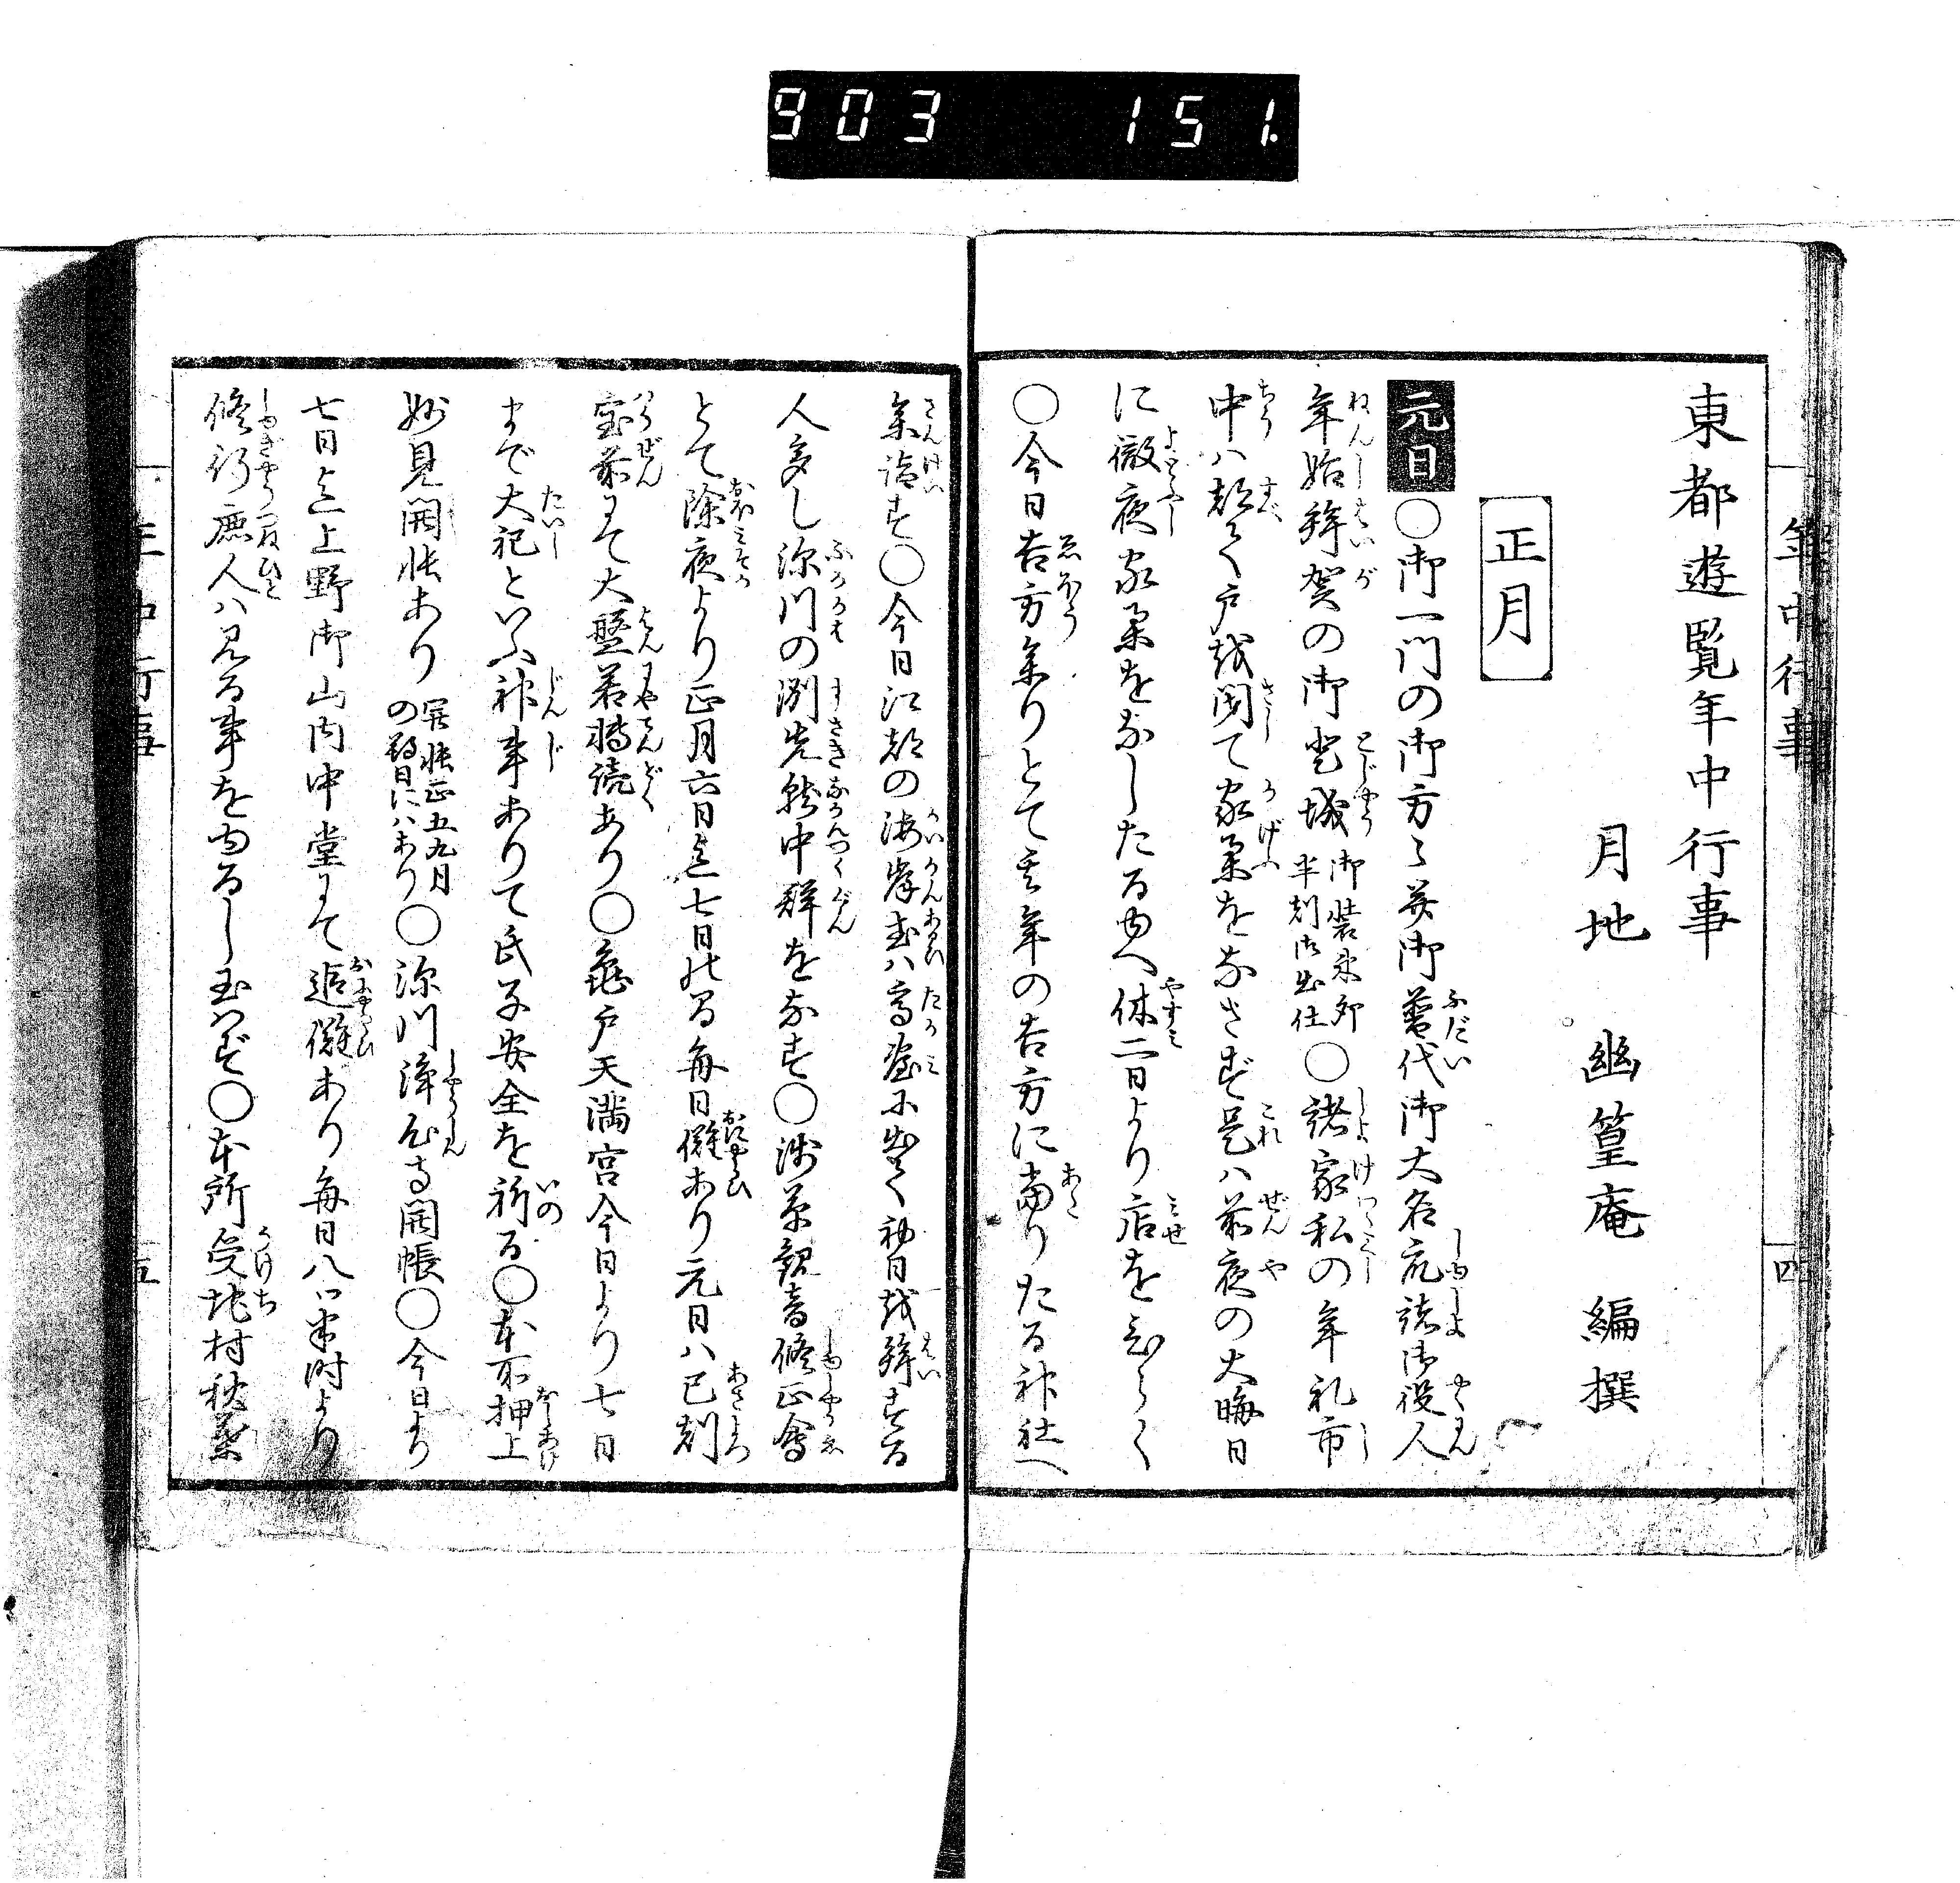 903 151.
年中行事
四
東都遊覧年中行事
月地 幽篁庵 編撰
正月
元日〇御一門の御方々并御普代御大名方諸御役人
年始拝賀の御登城 御装束卯半刻御出仕〇諸家私の年礼市
中ハ都て戸越閉て家業をなさず是ハ前夜の大晦日
に徹夜家業をなしたるゆへ休二日より店をひらく
〇今日吉方参りとて其年の吉方に当りたる神社へ
参詣す〇今日江都の海岸或ハ高畄に出て初日越拝する
人多し深川の洲先殊中群をなす〇浅草観音修正会
とて除夜より正月六日迄七日の間毎日儺あり元日ハ巳刻
宝前にて大盤若転読あり〇亀戸天満宮今日より七日
まで大祀といふ神事ありて氏子安全を祈る〇本所押上
妙見開帳あり 開帳正五九月の朔日にハあり〇深川浄心寺開帳〇今日より
七日迄上野御山内中堂にて追儺あり毎日八つ半時より
修行庶人ハ見る事をゆるし玉はず〇本所受地村秋葉
年中行事
五